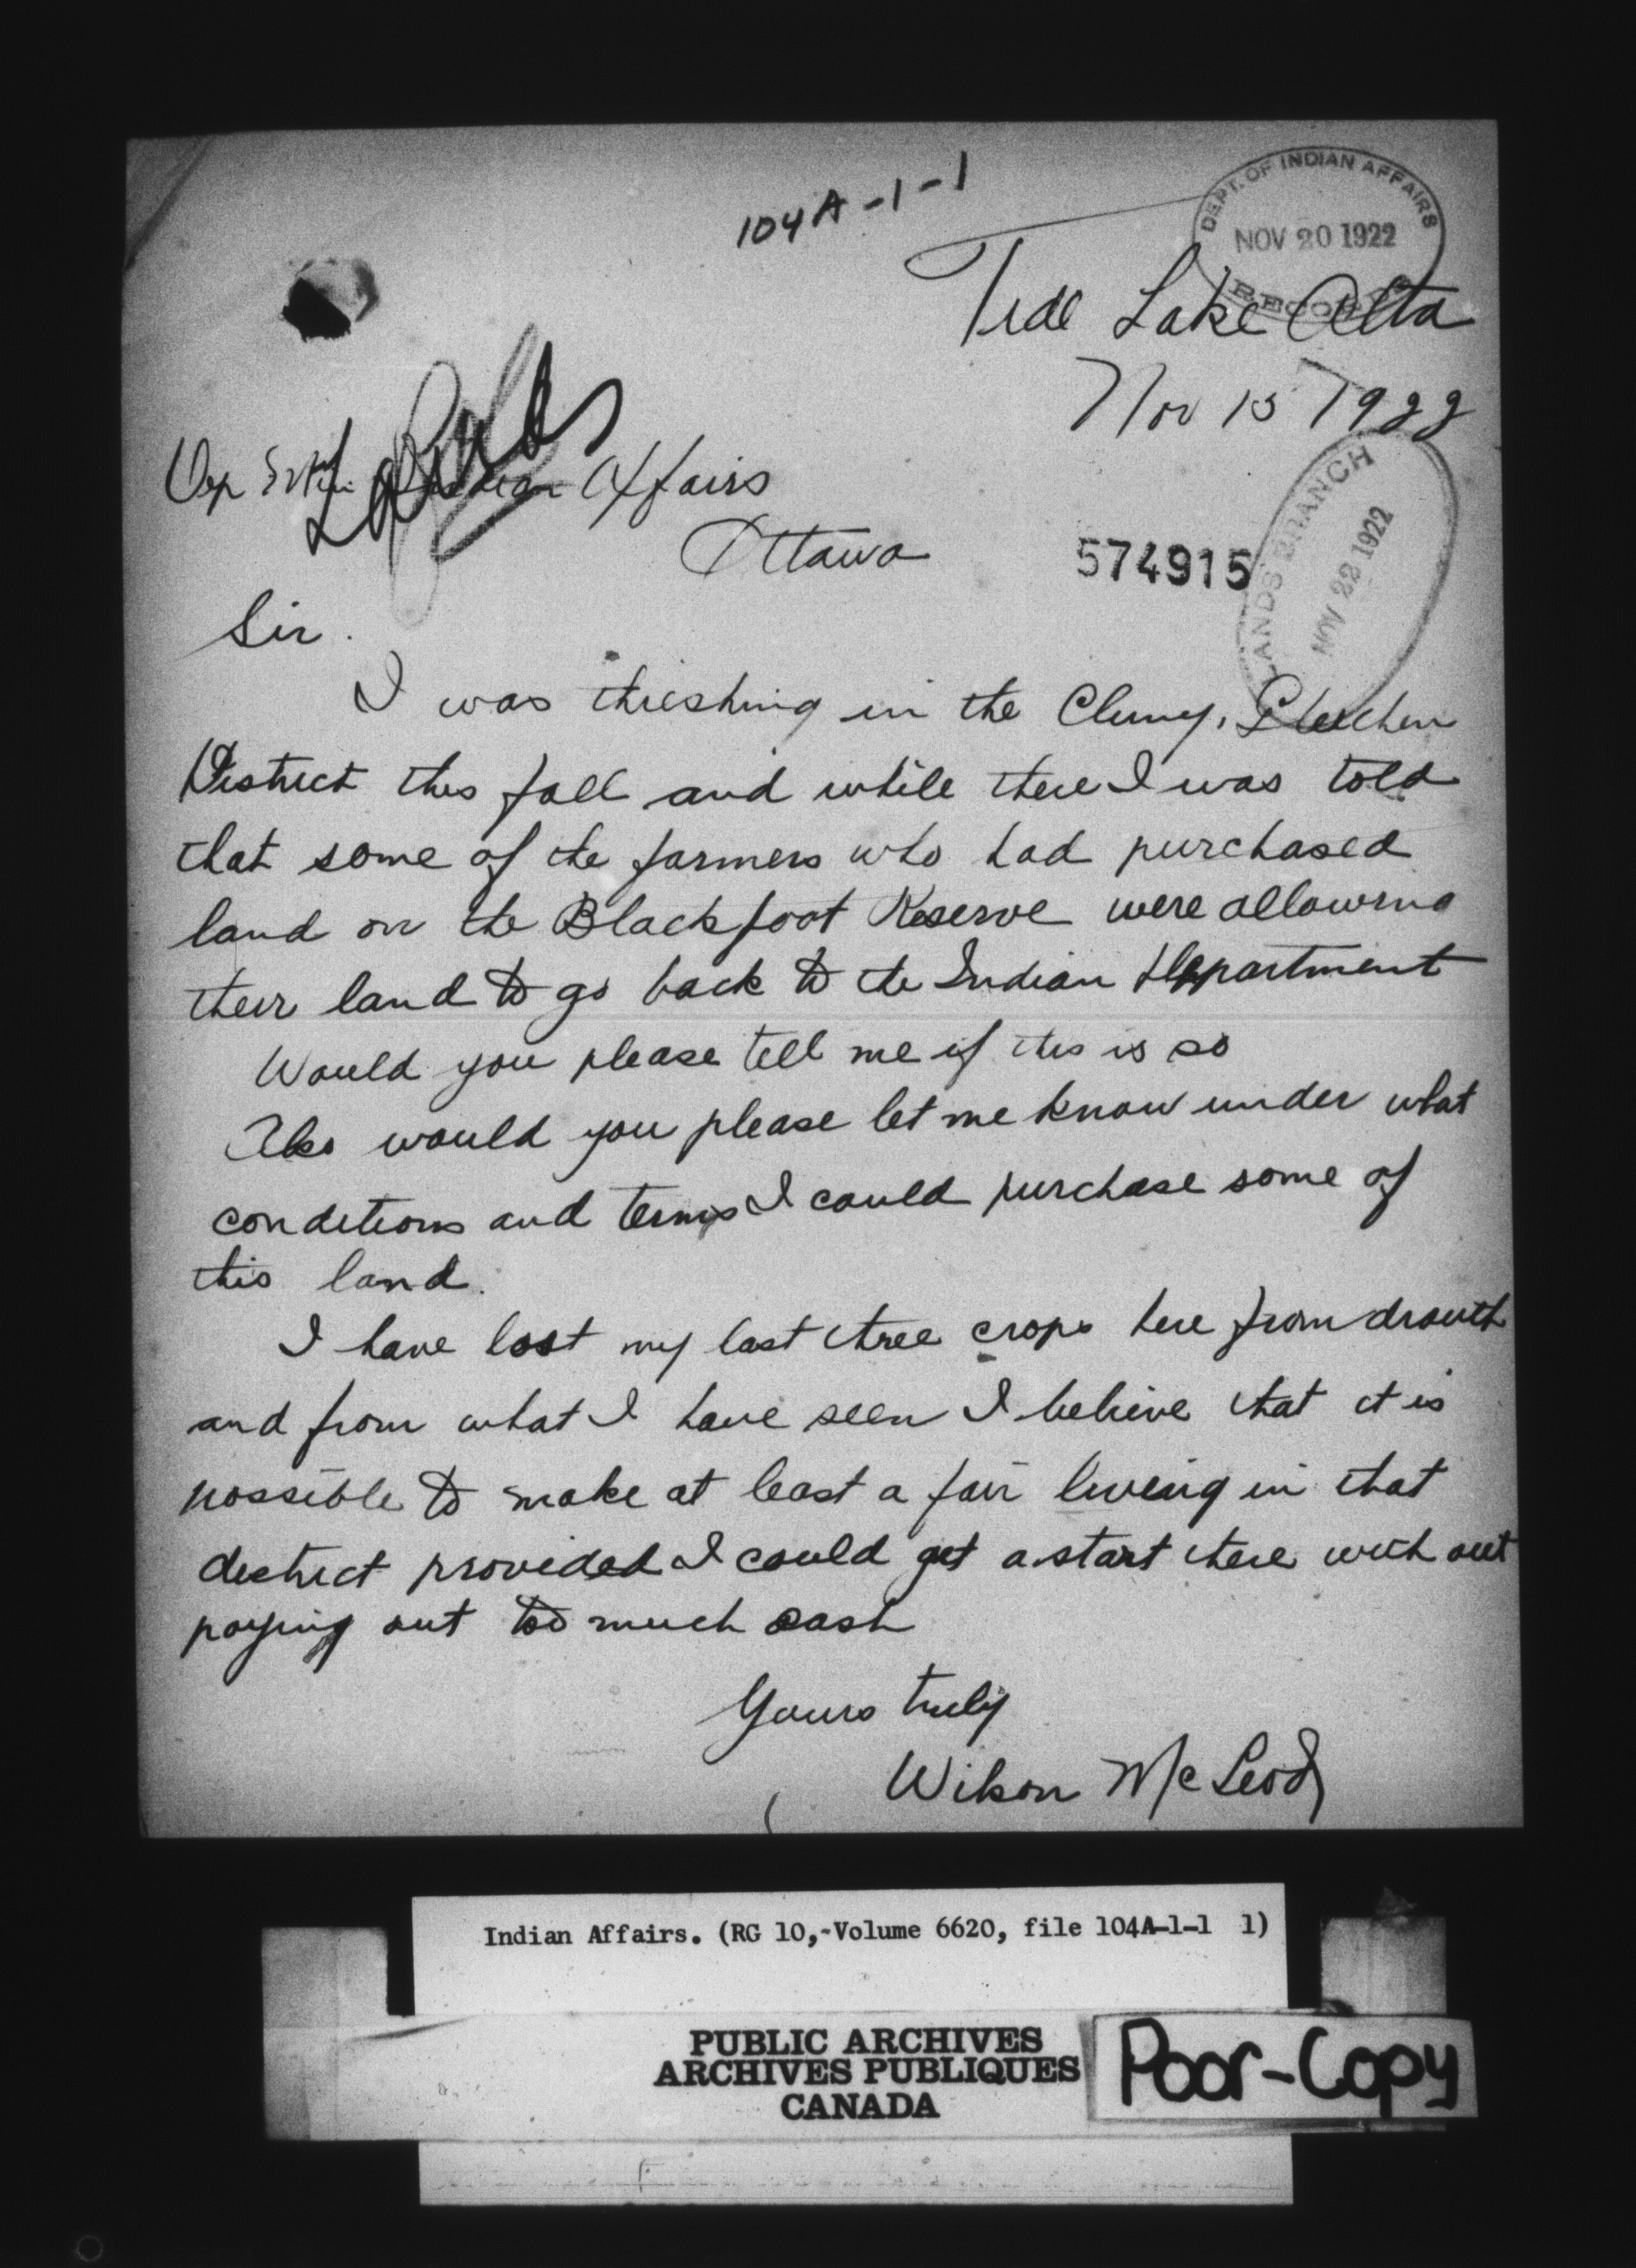 104A-1-1
DEPT. OF INDIAN AFFAIRS
NOV 20 1922
RECORDS
Tide Lake Alta
Nov 15 1922
Lands
Dep Indian Affairs
Ottawa
574915
LANDS BRANCH
NOV 22 1922
Sir.
I was threshing in the Cluny, Gleichen
District this fall and while there I was told
that some of the farmers who had purchased
land on the Blackfoot Reserve were allowing
their land to go back to the Indian Department
Would you please tell me if this is so
Also would you please let me know under what
conditions and terms I could purchase some of
this land.
I have lost my last three crops here from drouth
and from what I have seen I believe that it is
possible to make at least a fair living in that
district provided I could get a start there with out
paying out too much cash
Yours truly
Wilson McLeod
Indian Affairs. (RG 10, Volume 6620, file 104A-1-1 1)
PUBLIC ARCHIVES
ARCHIVES PUBLIQUES
CANADA
Poor-Copy